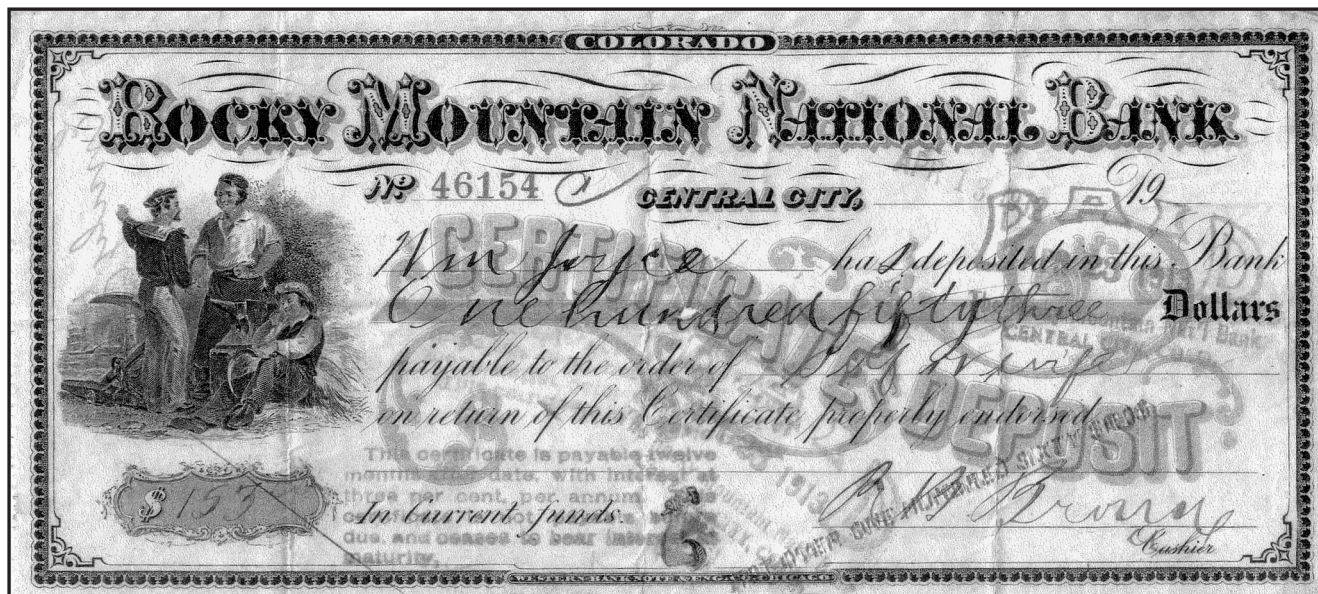 COLORADO
ROCKY MOUNTAIN NATIONAL BANK
No. 46154
CENTRAL CITY, 19
Wm Joyce has deposited in this Bank
One hundred fifty three Dollars
payable to the order of Self or wife
on return of this Certificate properly endorsed
CERTIFICATE DEPOSIT
CENTRAL
This certificate is payable twelve
months date, with interest at
three per cent. per annum,
In Current funds.
due, and ceases to bear
maturity.
$ 153
1913
NOT OVER ONE HUNDRED SIXTY
Brown
Cashier
WESTERN BANK NOTE & ENG. CO. CHICAGO